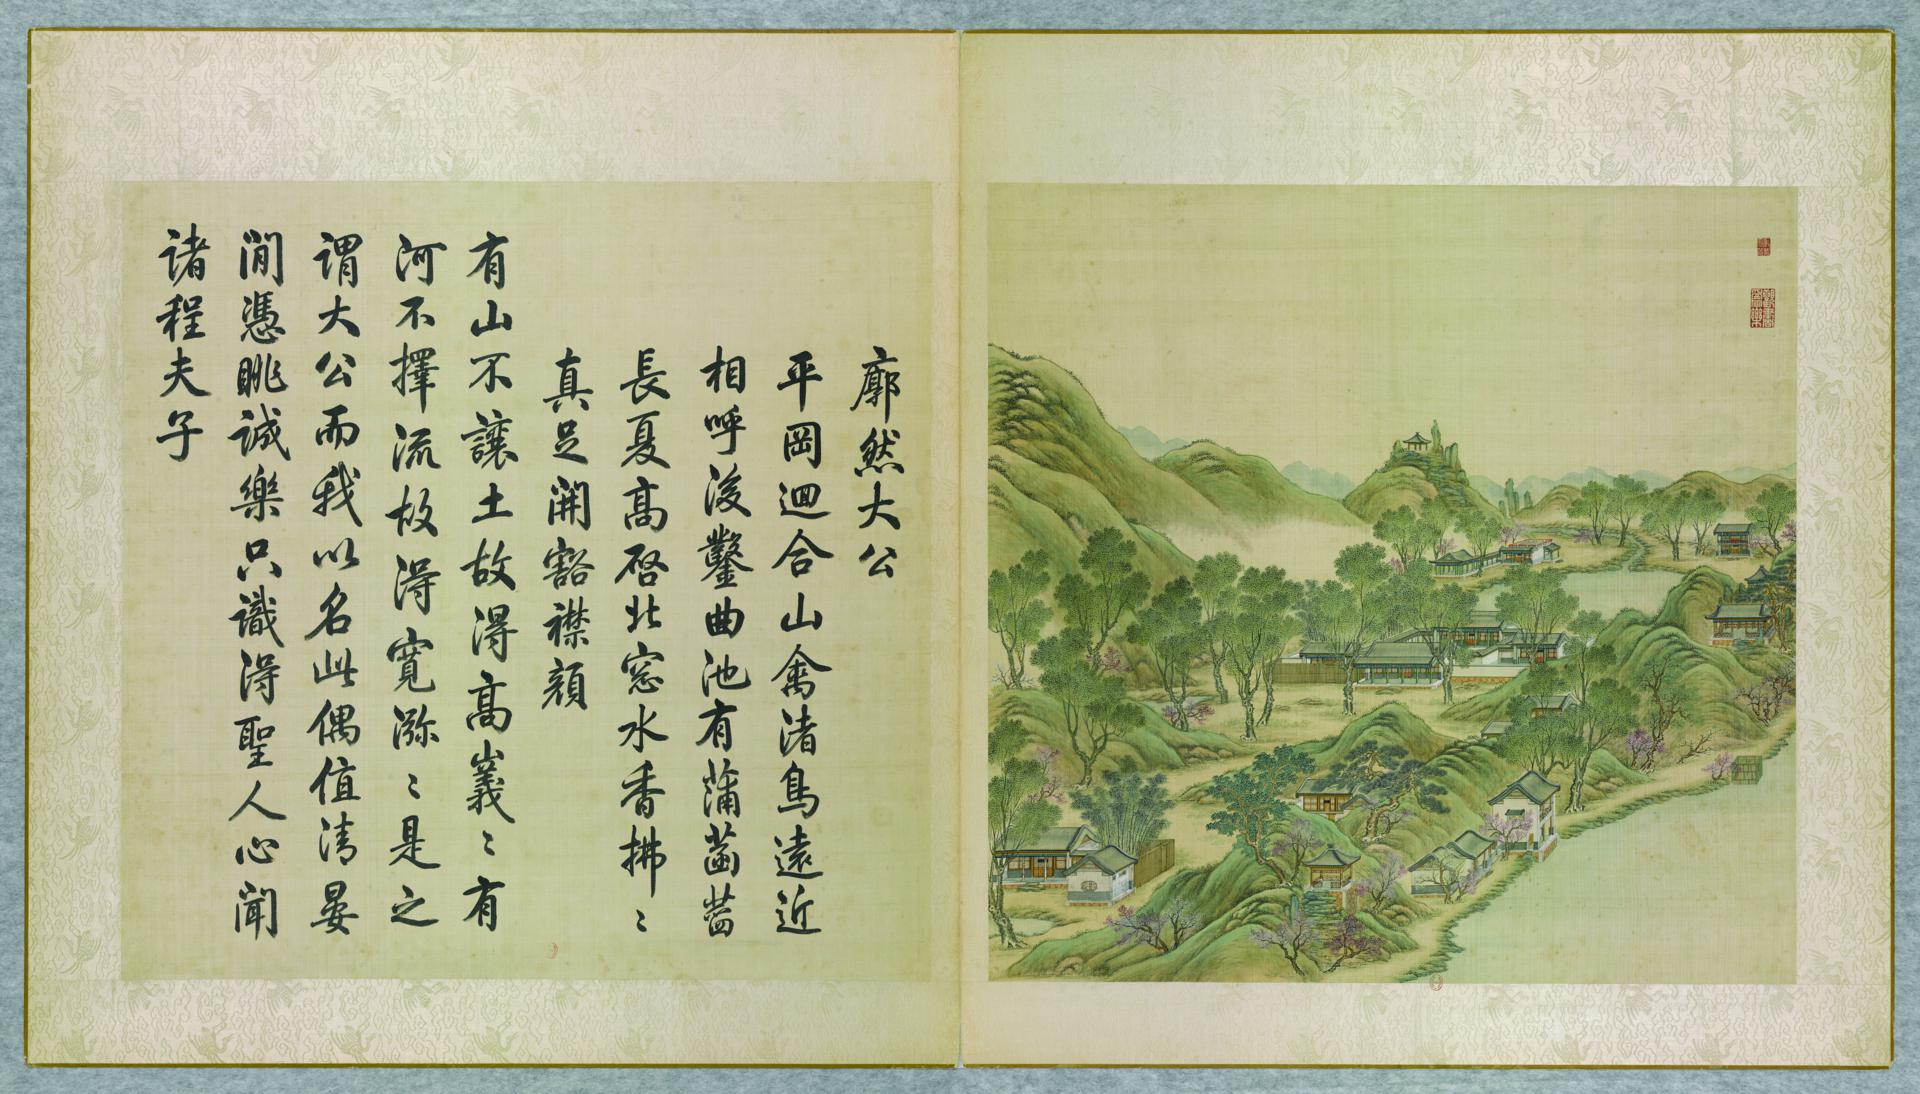 廓然大公
平岡迴合山禽渚鳥遠近
相呼後鑿曲池有蒲菡萏
長夏高啓北窓水香拂〻
真足開豁襟顔
有山不讓土故得高嶪〻有
河不擇流故得寬㳽〻是之
謂大公而我以名此偶值清晏
閒憑眺誠樂只識得聖人心聞
諸程夫子